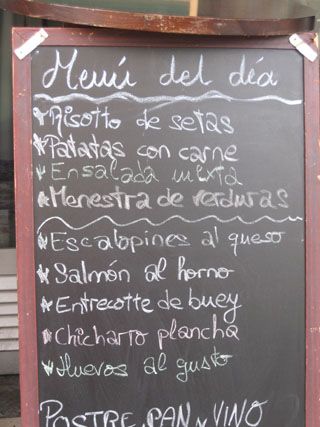 Menú del día
Risotto de setas
Patatas con carne
Ensalada mixta
Menestra de verduras
Escalopines al queso
Salmón al horno
Entrecotte de buey
Chicharro plancha
Huevos al gusto
POSTRE, PAN y VINO